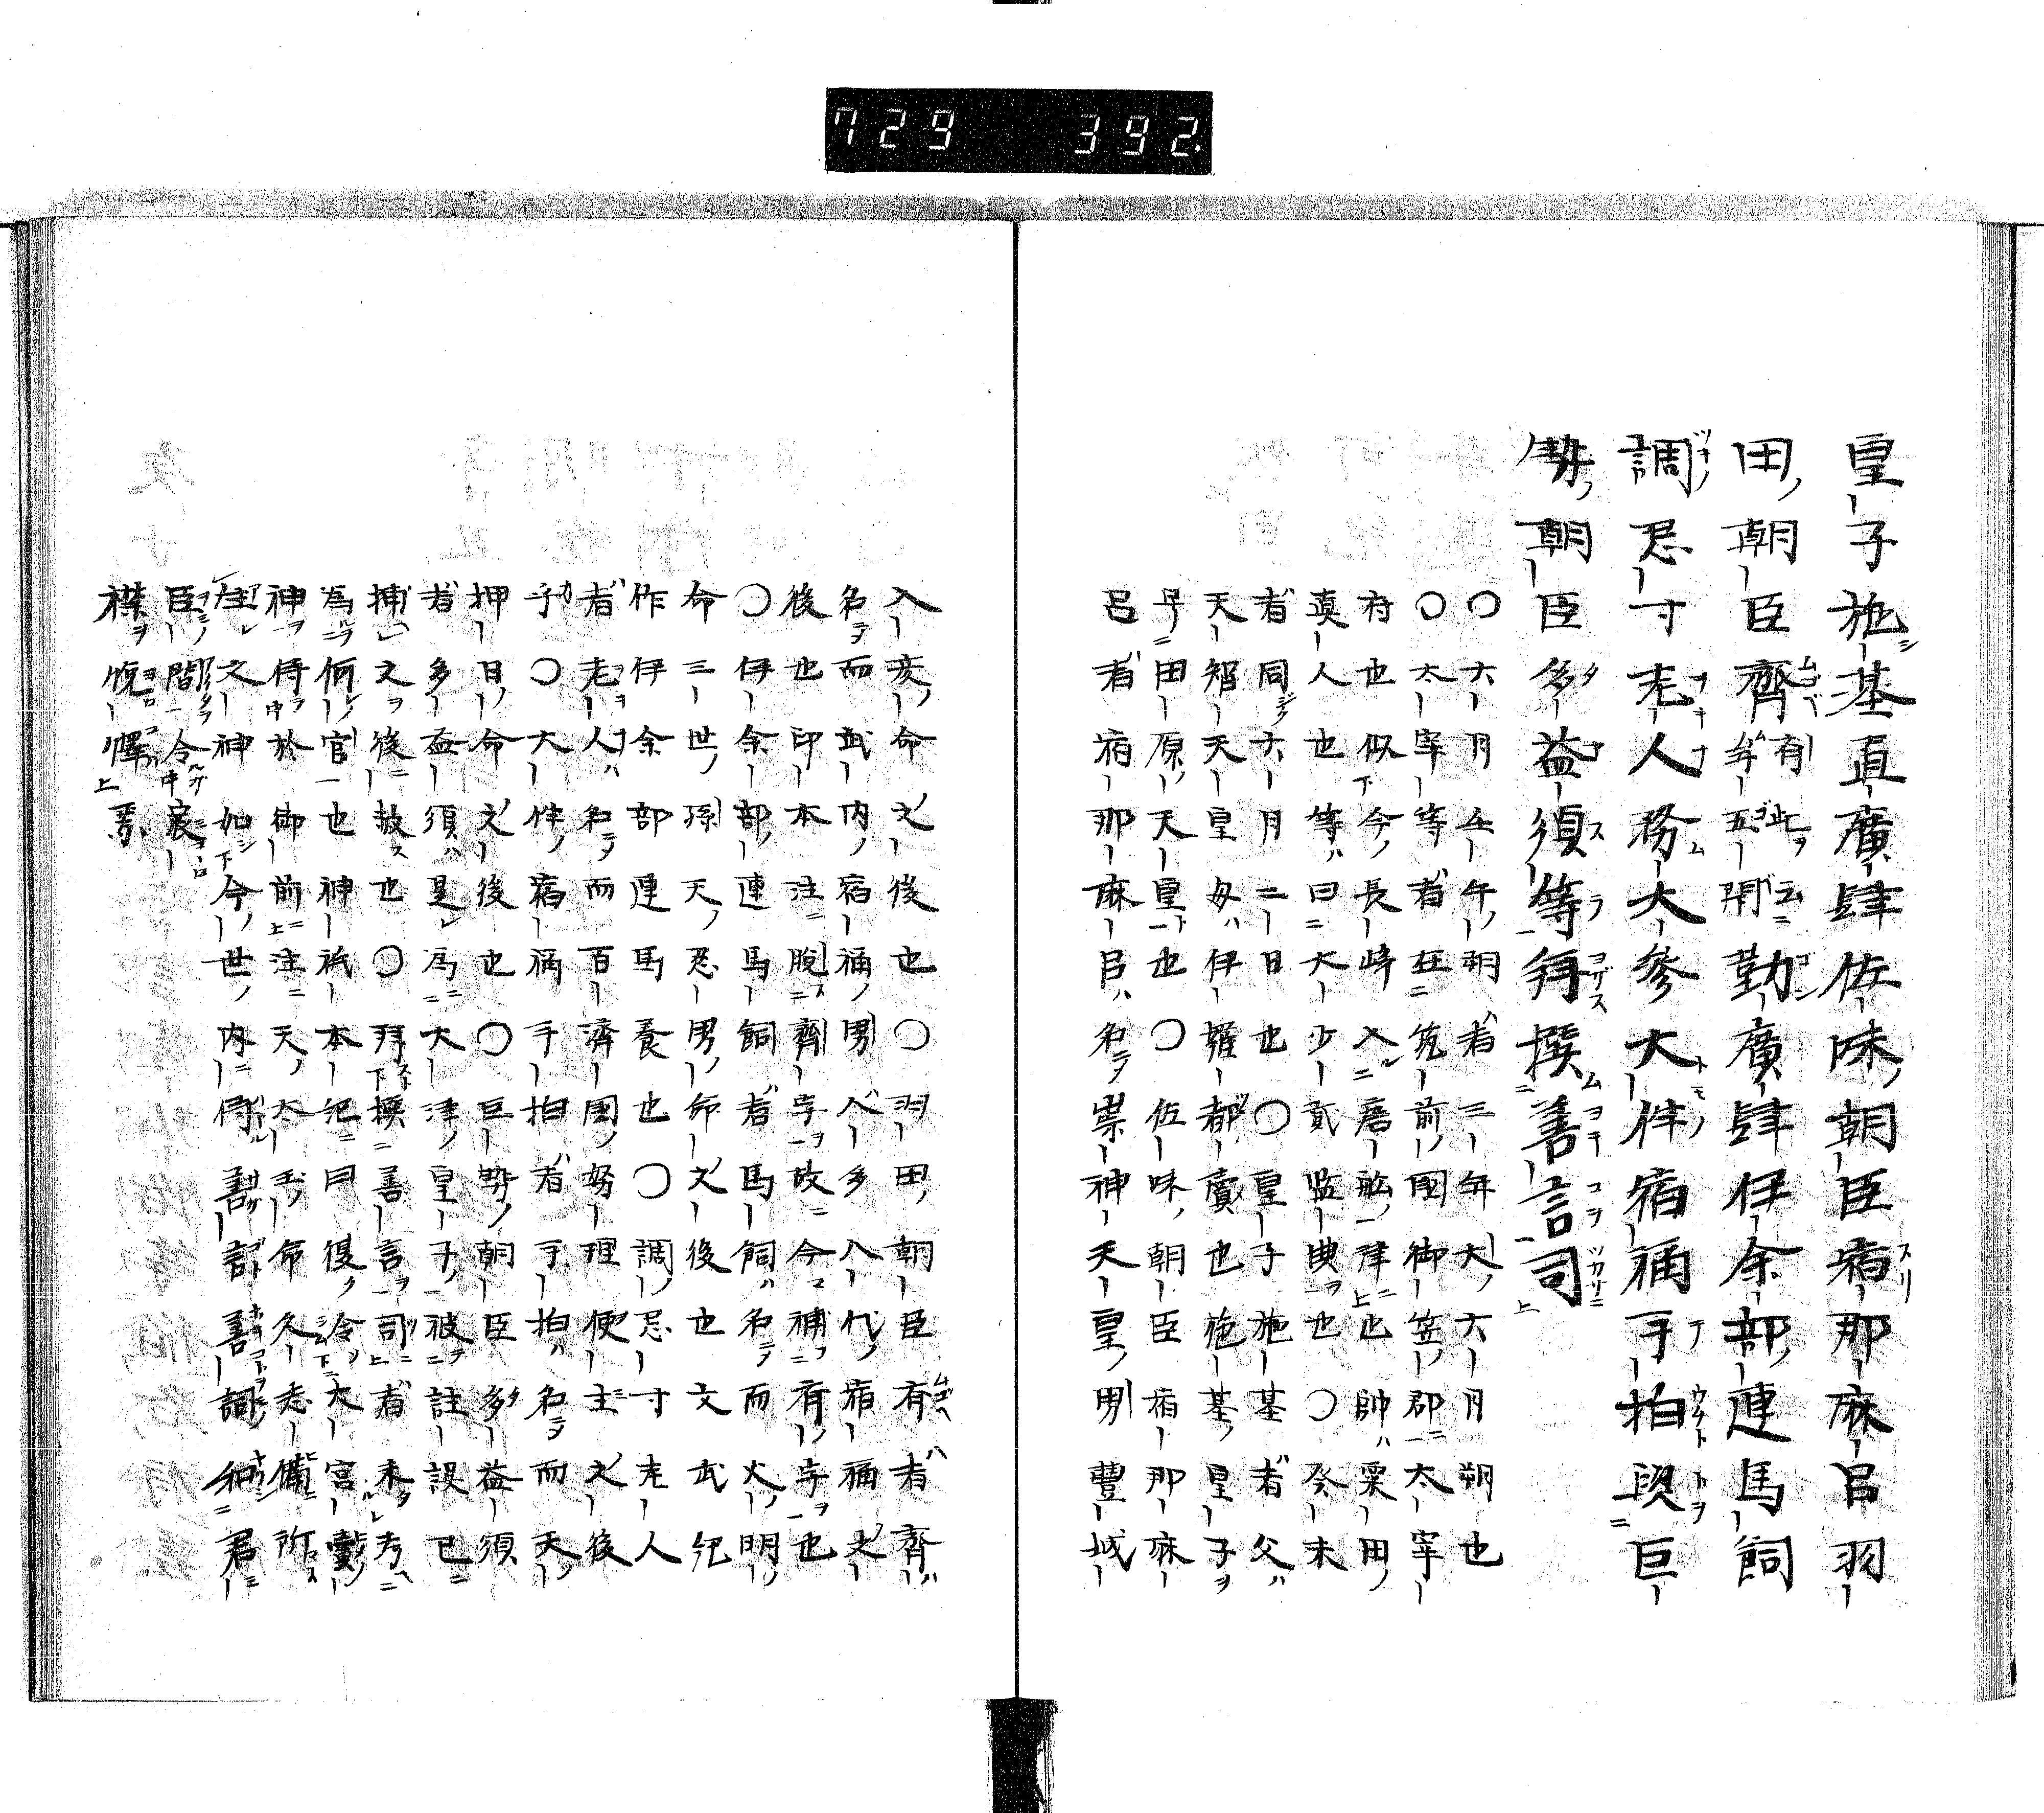 729 392.
皇子施基直廣肆佐味朝臣宿那麻呂羽
田朝臣齊有此ヲ云ニ牟五閇勤廣肆伊余部連馬飼
調忌寸老人務大參大伴宿祢手拍與巨
勢朝臣多益須等拜撰善言司
〇六月壬午朔者三年大六月朔也
〇太宰等者在筑前國御笠郡太宰
府也似今長崎入唐舩津也帥栗田
真人也等曰大少貳監典也〇癸未
者同六月二日也〇皇子施基者父
天智天皇母伊羅都賣也施基皇子
号田原天皇也〇佐味朝臣宿那麻
呂者宿那麻呂名崇神天皇男豐城
入彦命之後也〇羽田朝臣有者齊
名而武内宿祢男八多八代宿祢之
後也印本注脫齊字故今補有字也
〇伊余部連馬飼者馬飼名而火明
命三世孫天忍男命之後也文武紀
作伊余部連馬養也〇調忌寸老人
者老人名而百濟國努理使主之後
手〇大伴宿祢手拍者手拍名而天
押日命之後也〇巨勢朝臣多益須
者多益須是爲大津皇子被註誤已
捕之後赦也〇拜撰善言司者未考
爲何官也神祇本紀曰復令大宮賣
神侍於御前注天太玉命久志備所
生之神如今世内侍善言善詞和君
臣間令宸襟悅懌焉